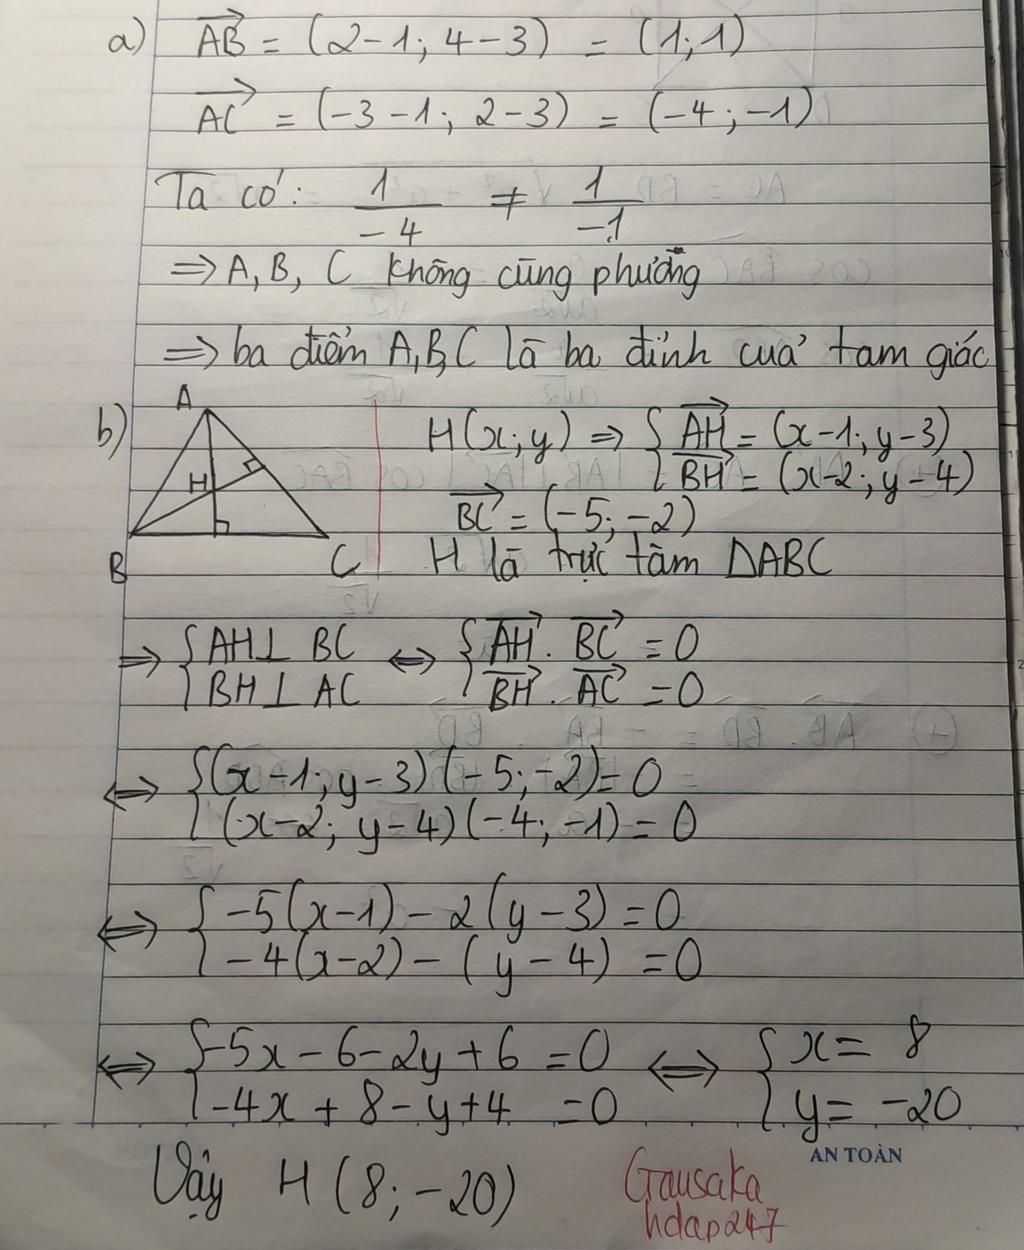 a) AB = (2-1; 4-3) = (1; 1)
AC = (-3-1; 2-3) = (-4; -1)
Ta có: 1/-4 ≠ 1/-1
=> A, B, C không cùng phương
=> ba điểm A, B, C là ba đỉnh của tam giác
b) A H B C
H(x; y) => { AH = (x-1; y-3)
{ BH = (x-2; y-4)
BC = (-5; -2)
H là trực tâm ΔABC
=> { AH ⊥ BC <=> { AH . BC = 0
{ BH ⊥ AC { BH . AC = 0
<=> { (x-1; y-3)(-5; -2) = 0
{ (x-2; y-4)(-4; -1) = 0
<=> { -5(x-1) - 2(y-3) = 0
{ -4(x-2) - (y-4) = 0
<=> { -5x - 6 - 2y + 6 = 0 <=> { x = 8
{ -4x + 8 - y + 4 = 0 { y = -20
AN TOÀN
Vậy H (8; -20)
Gausaka
hdap247